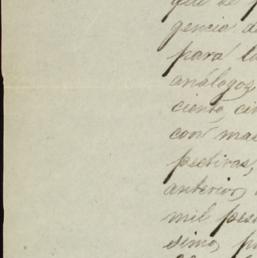 que se
gencia d
para l
análogo,
ciento, ci
con mas
pectivas,
anterior,
mil pes
simo, p